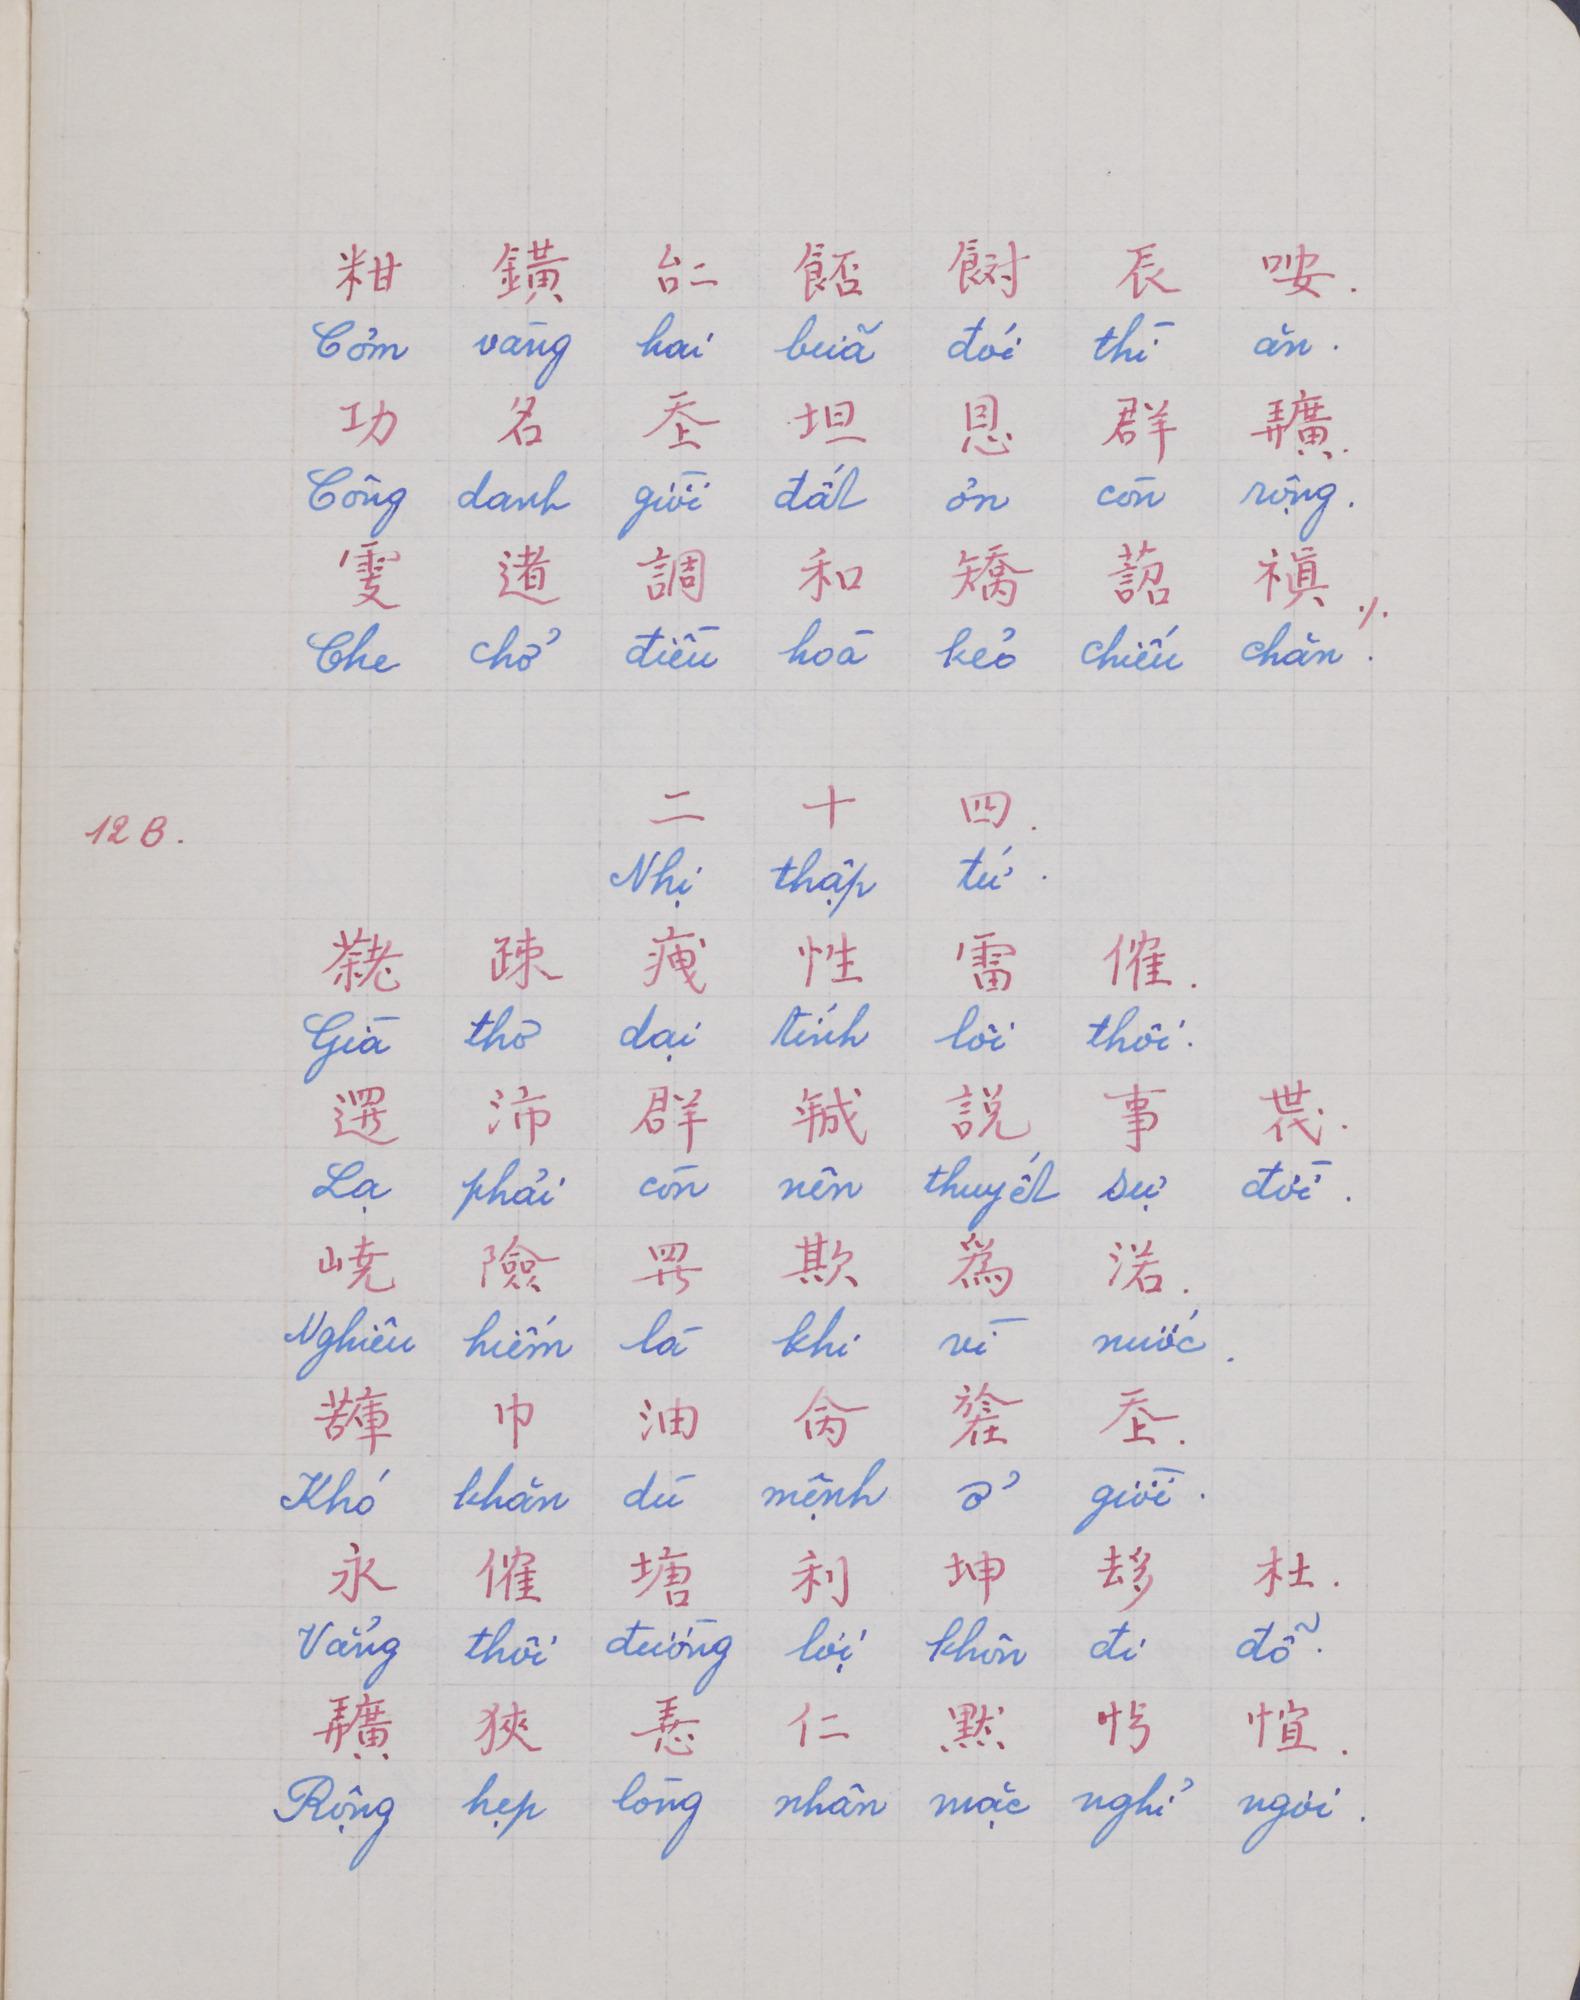 粓 鐄 𠄩 𩛷 𩚵 辰 咹.
Cơm vàng hai buã đói thì ăn.
功 名 𡗶 坦 恩 群 𢌌.
Công danh giời đất ơn còn rộng.
雯 𨔾 調 和 矯 詔 禛 ./.
Che chở điều hoà kẻo chiếu chăn.
12 B.
二 十 四.
Nhị thập tứ.
疎 性 雷 催.
Già thơ dại tính lôi thôi.
沛 群 𢧚 説 事 𠁀.
Lạ phải còn nên thuyết sự đời.
嶢 險 𱺵 欺 爲 渃.
Nghiêu hiểm là khi vì nước.
巾 油 𡗶.
Khó khăn dù mệnh ở giời.
永 催 塘 利 坤 𠫾 杜.
Vắng thôi đường lợi khôn đi đỗ.
𢌌 狹 𢚸 仁 默 𢪀 愃.
Rộng hẹp lòng nhân mặc nghỉ ngơi.